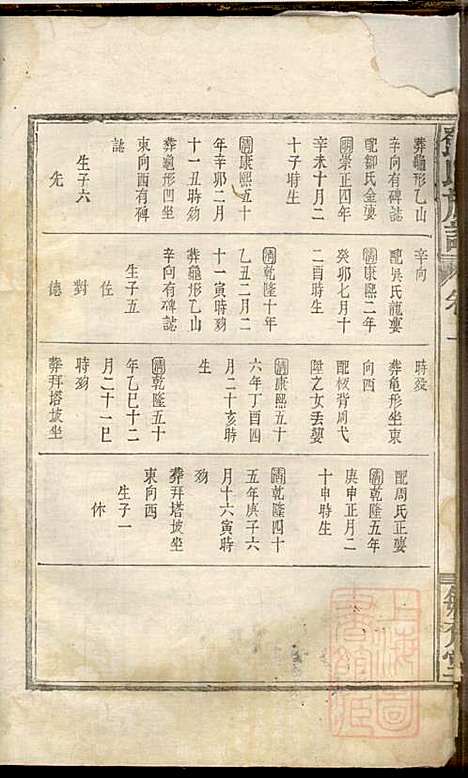 葬龜形乙山
辛向有碑誌
配鄒氏金嬰
明崇正四年
辛未十月二
十子時生
清康熙五十
年辛卯二月
十一丑時歿
葬龜形凹坐
東向西有碑
誌
生子六
先
辛向
配吳氏龍嬰
清康熙二年
癸卯七月十
二酉時生
清乾隆十年
乙丑二月二
十一寅時歿
葬龜形乙山
辛向有碑誌
生子五
佐
對
德
時歿
葬龜形坐東
向西
配椒背周弋
陞之女丢嬰
清康熙五十
六年丁酉四
月二十亥時
生
清乾隆五十
年乙巳十二
月二十一巳
時歿
葬拜塔坡坐
配周氏正嬰
清乾隆五年
庚申正月二
十申時生
清乾隆四十
五年庚子六
月十六寅時
歿
葬拜塔坡坐
東向西
生子一
休
氏族譜
卷二
上海圖書館藏